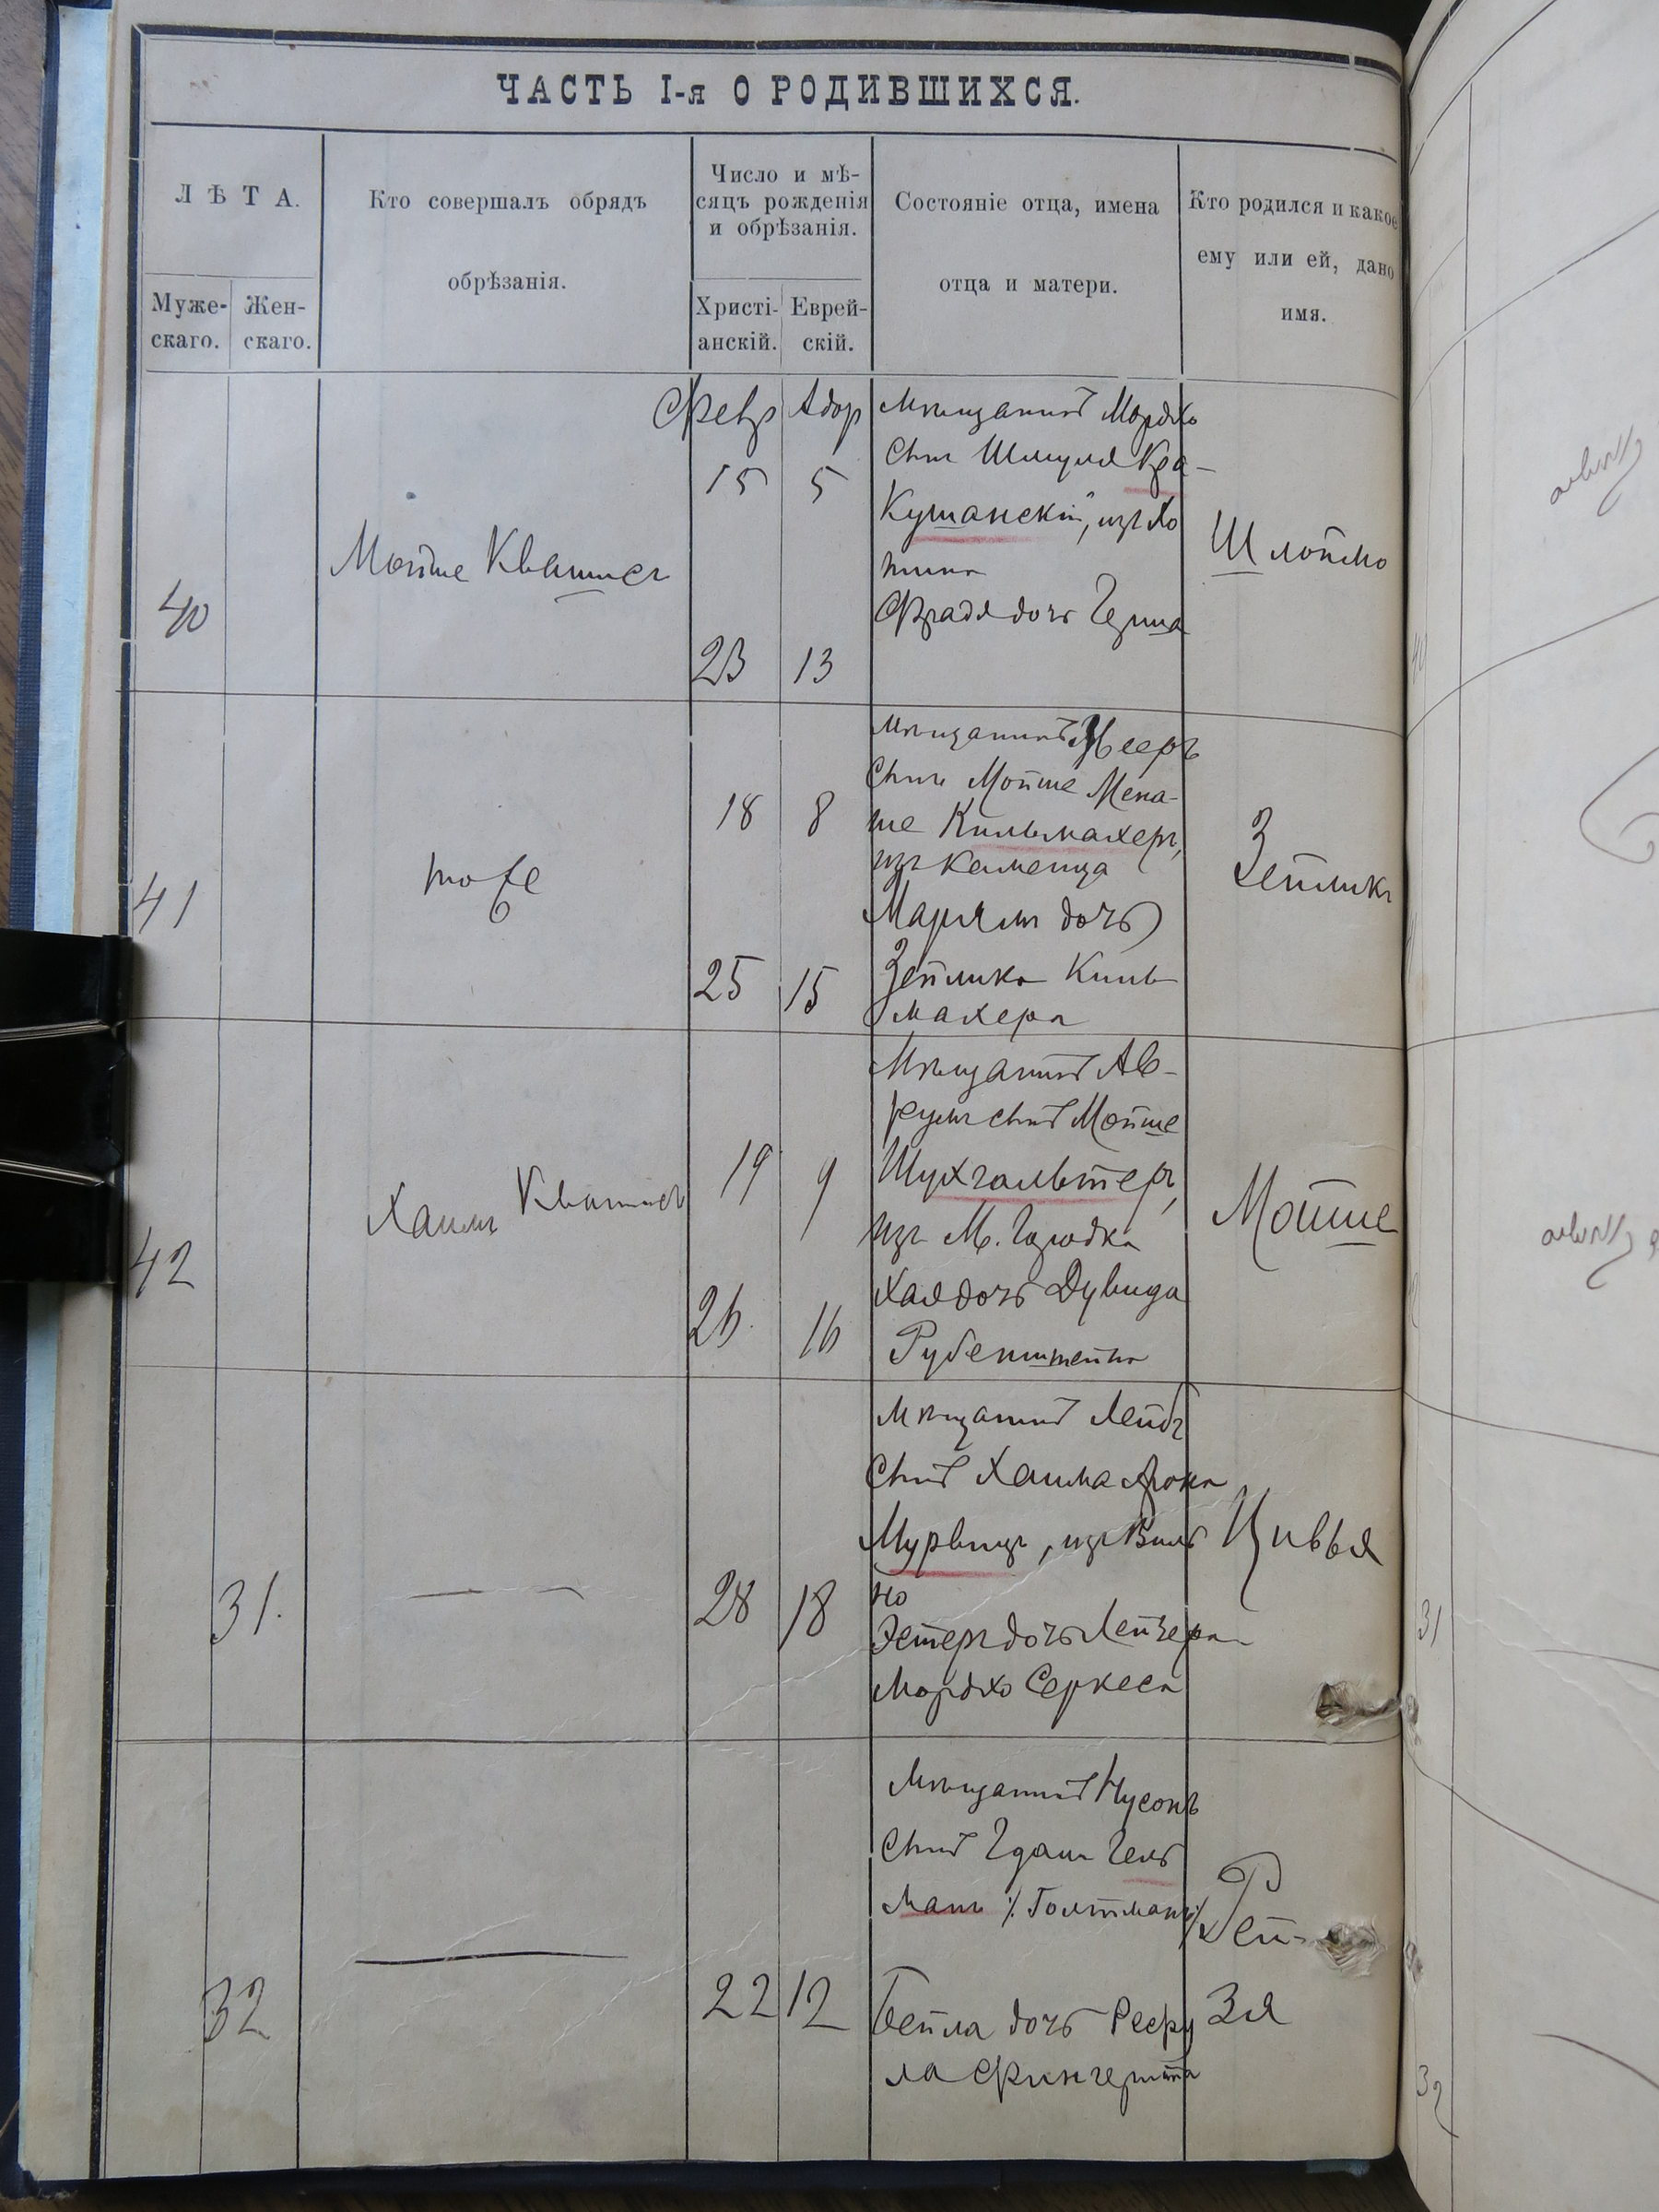 ЧАСТЬ I-я О РОДИВШИХСЯ.
ЛѢТА.
Муже-
скаго.
Жен-
скаго.
Кто совершалъ обрядъ
обрѣзанія.
Число и мѣ-
сяцъ рожденія
и обрѣзанія.
Христі-
анскій.
Еврей-
скій.
Состояніе отца, имена
отца и матери.
Кто родился и какое
ему или ей, дано
имя.
40
Мойше Квашнер
Февр Адар
15 5
23 13
Мѣщанинъ Мордхо
сынъ Шмуля Кра-
Кушанскій, изъ Хо
тина
Фрадя дочь Герша
Шлоймо
41
тоже
18 8
25 15
мѣщанинъ Мееръ
сынъ Мойше Мена-
ше Кильмахеръ,
изъ Каменца
Марямъ дочь
Зейлика Киль
махера
Зейликъ
42
Хаимъ
19 9
26 16
Мѣщанинъ Ав-
румъ сынъ Мойше
Шухгальтеръ,
изъ М. Городка
Хая дочь Дувида
Рубенштейна
Мойше
31.
28 18
мѣщанинъ Лейбъ
сынъ Хаима Арона
Мурвицъ, изъ Виль
но
Эстеръ дочь Лейзера
Мордхо Серкеса
Цивья
32
22 12
Мѣщанинъ Нусонъ
сынъ Гель
манъ /. Голтманъ /.
Бейла дочь Рефу
ла Фингерита
Рей-
зя
31
32